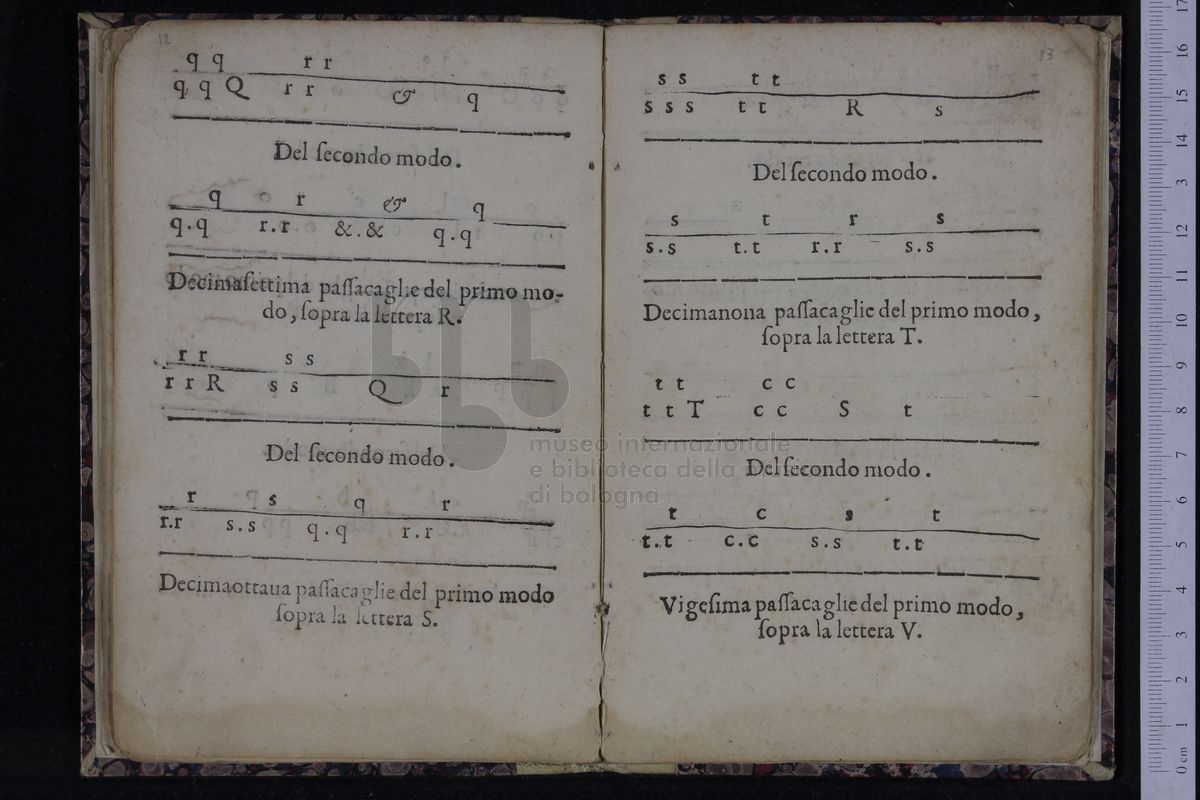 12
q q r r
q q Q r r & q
Del ſecondo modo.
q r & q
q.q r.r &.& q.q
Decimaſettima paſſacaglie del primo mo-
do, ſopra la lettera R.
r r s s
r r R s s Q r
Del ſecondo modo.
r s q r
r.r s.s q.q r.r
Decimaottaua paſſacaglie del primo modo
ſopra la lettera S.
13
s s t t
s s s t t R s
Del ſecondo modo.
s t r s
s.s t.t r.r s.s
Decimanona paſſacaglie del primo modo,
ſopra la lettera T.
t t c c
t t T c c S t
Del ſecondo modo.
t c s t
t.t c.c s.s t.t
Vigeſima paſſacaglie del primo modo,
ſopra la lettera V.
museo internazionale
e biblioteca della
di bologna
0 cm 1 2 3 4 5 6 7 8 9 10 11 12 13 14 15 16 17